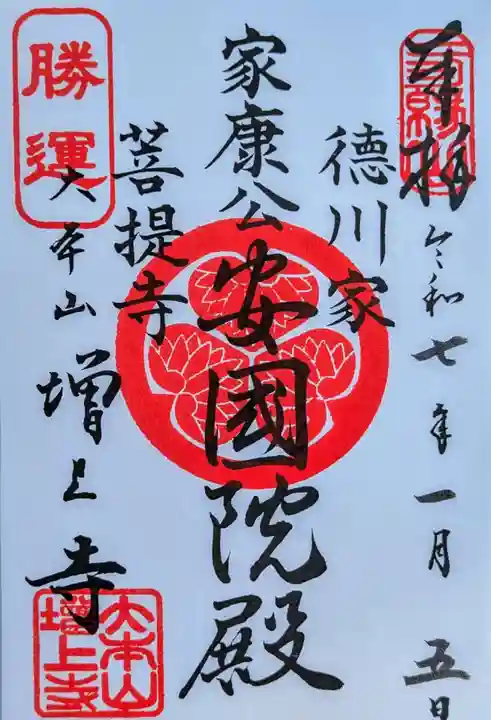 奉拝
令和七年一月五日
徳川家
家康公安國院殿
菩提寺
勝運
大本山増上寺
大本山
増上寺